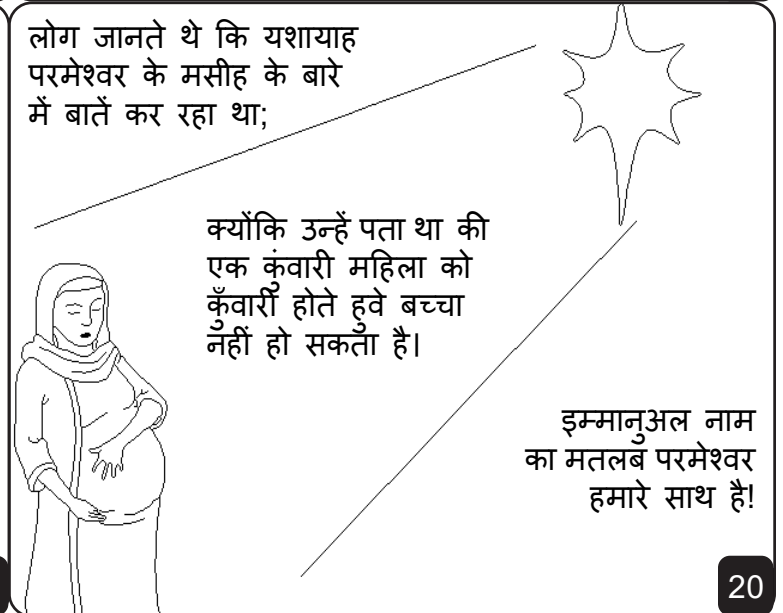 लोग जानते थे कि यशायाह
परमेश्वर के मसीह के बारे
में बातें कर रहा था;
क्योंकि उन्हें पता था की
एक कुंवारी महिला को
कुँवारी होते हुवे बच्चा
नहीं हो सकता है।
इम्मानुअल नाम
का मतलब परमेश्वर
हमारे साथ है!
20